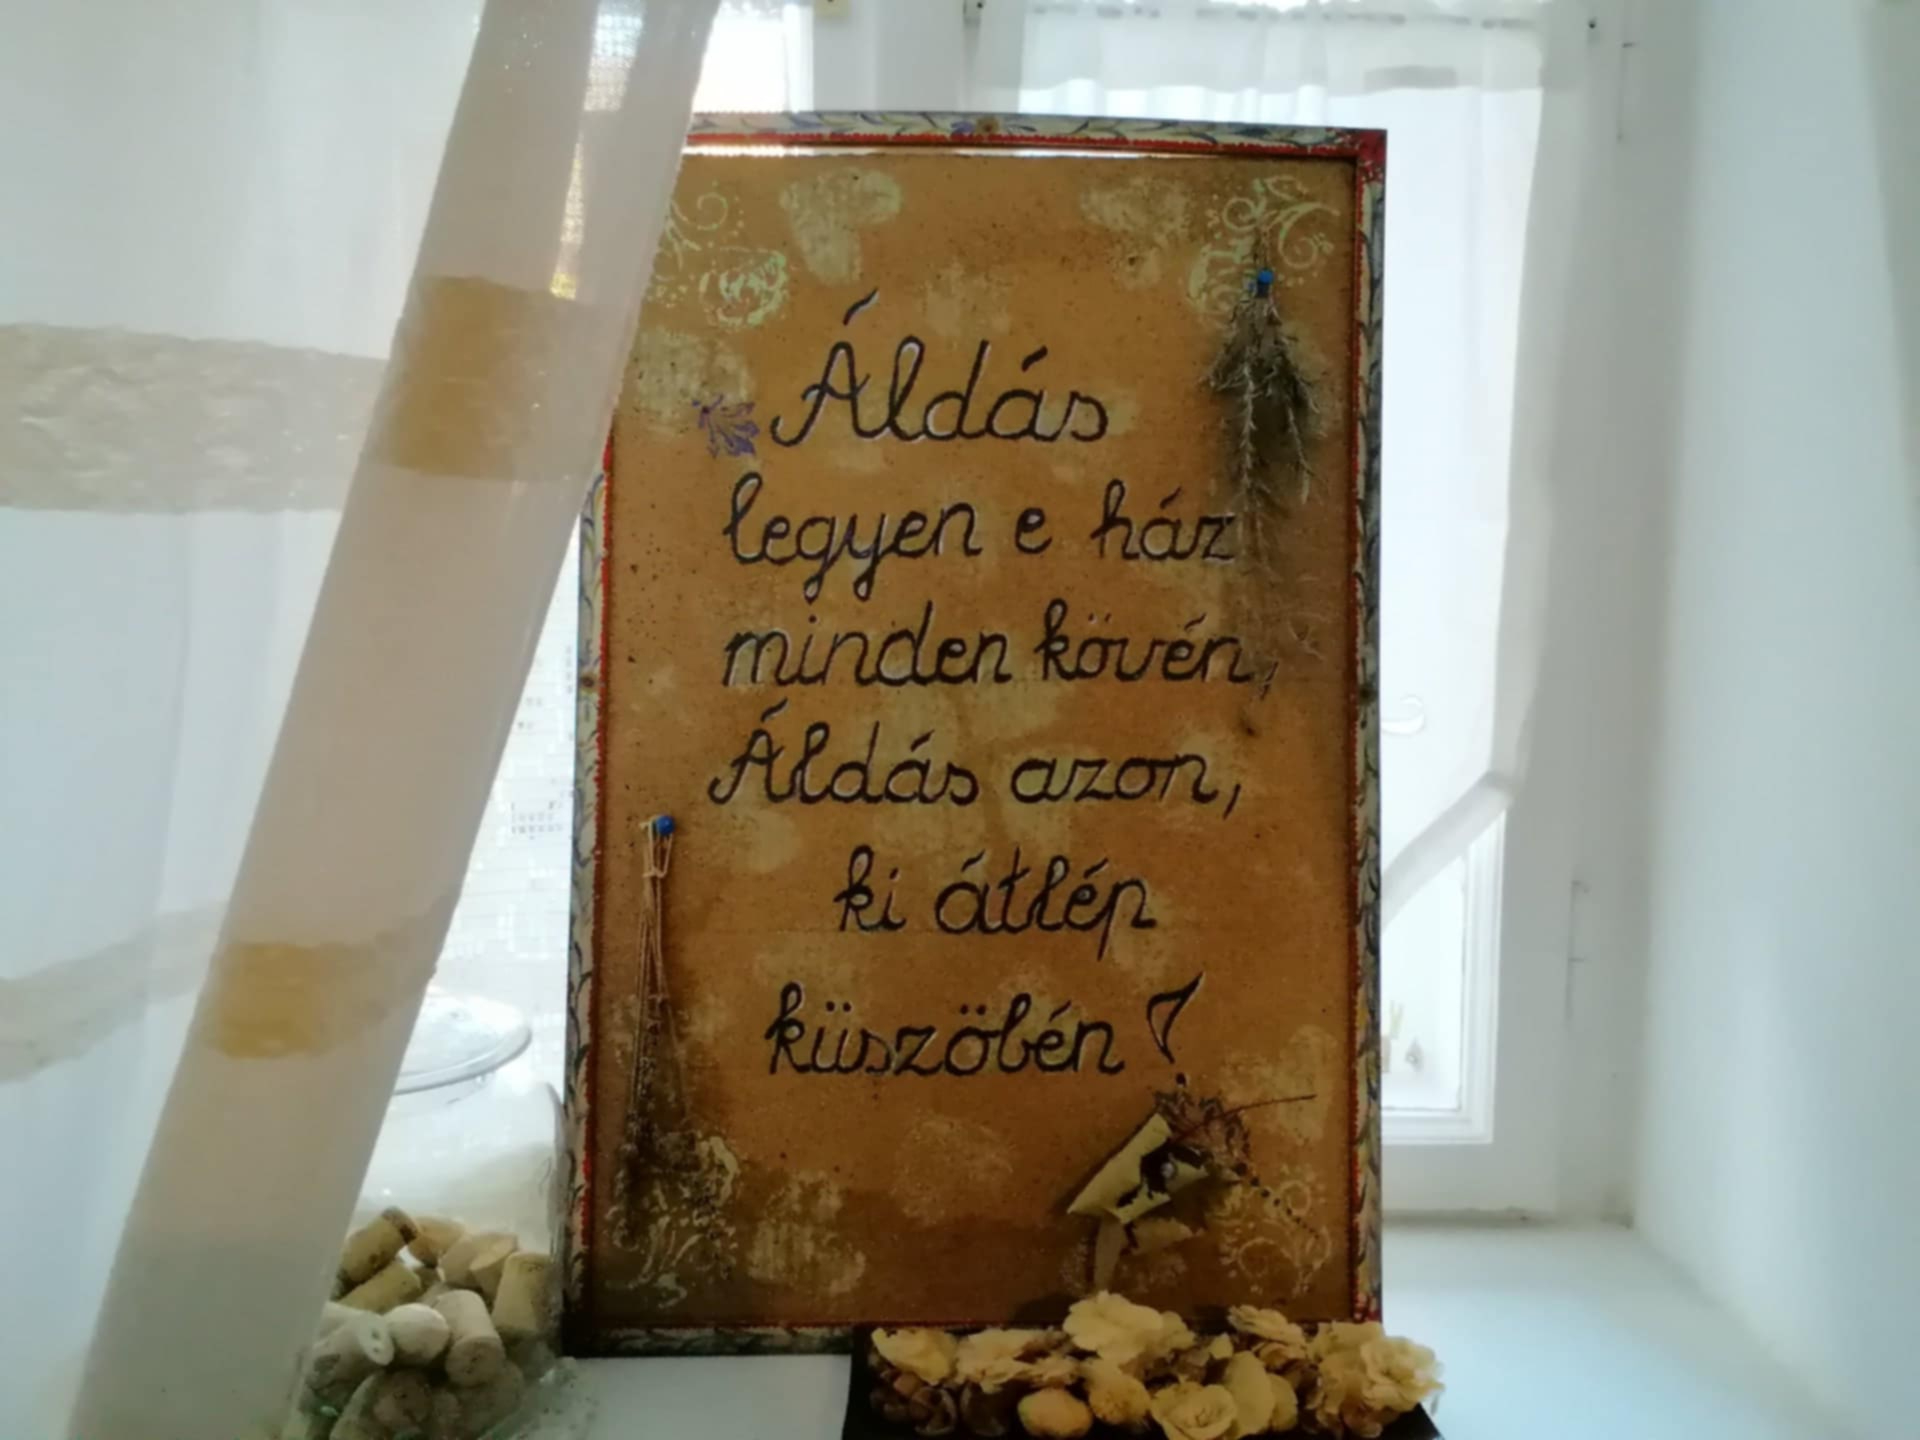 Áldás
legyen e ház
minden kövén,
Áldás azon,
ki átlép
küszöbén!